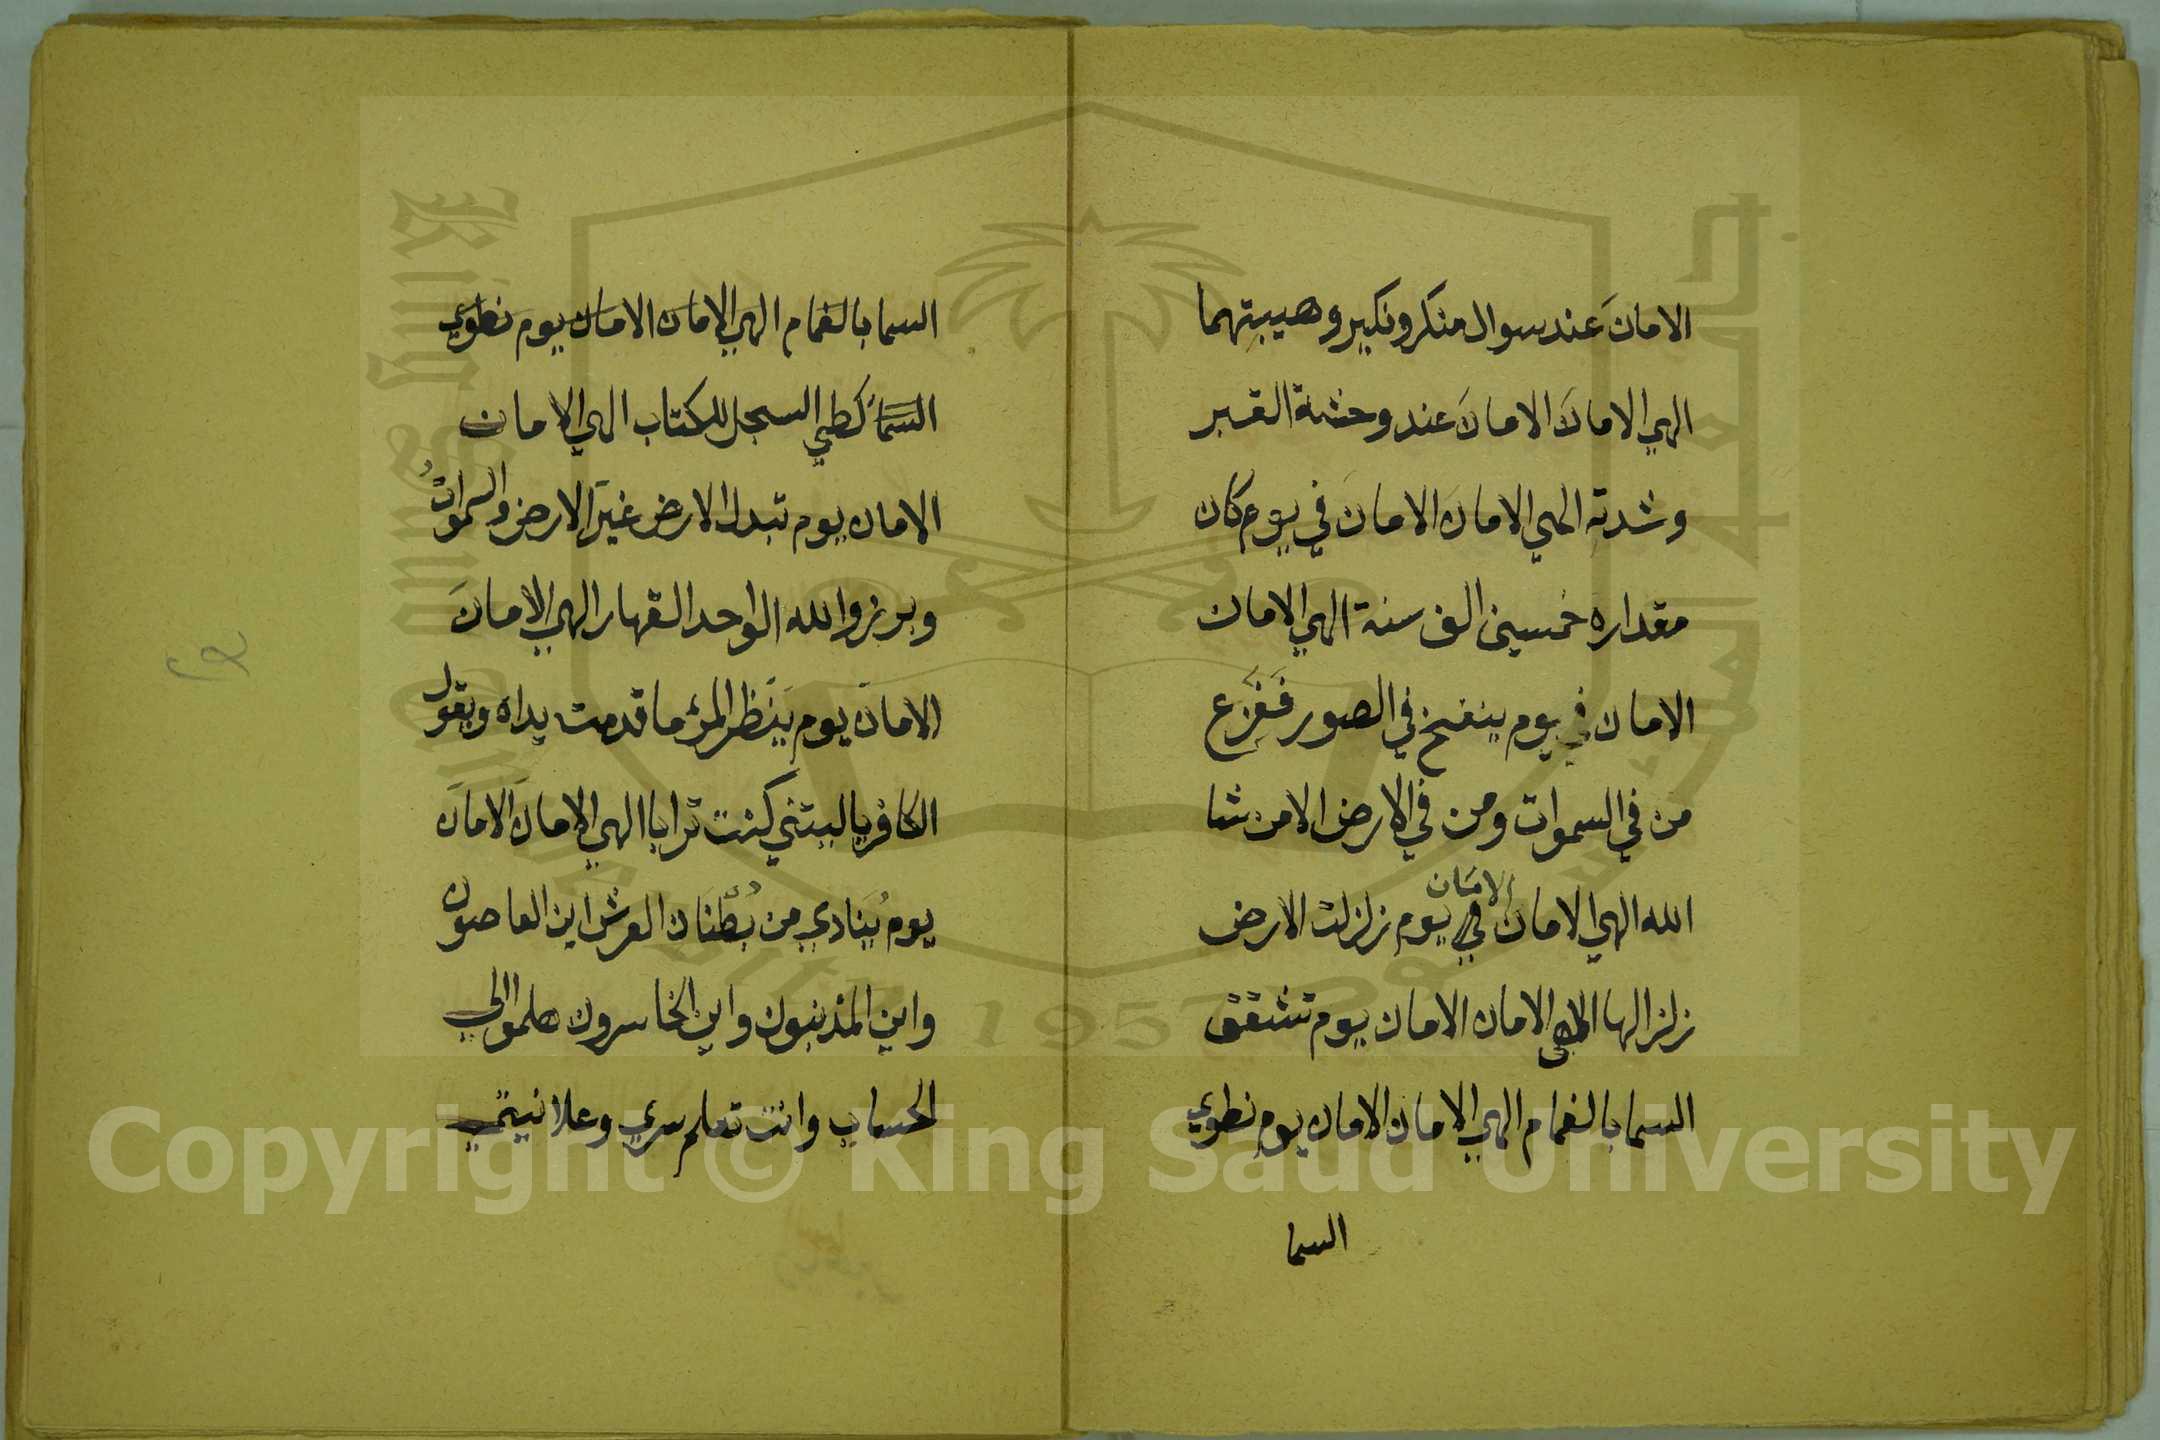 الامانَ عند سوال منكر ونكير وهيبتهما
الهي الامانَ الامانَ عند وحشة القبر
وشدته الهي الامانَ الامانَ في يوم كان
مقداره خمسين الف سنة الهي الامان
الامان في يوم ينفخ في الصور فَفَزِع
من في السموات ومن في الارض الا من شا
الله الهي الامان الامَان في يوم زلزلت الارض
زلزالها الهي الامان الامان يوم تشقق
السما بالغمام الهي الامان الامان يوم نطوي
السما
السما بالغمام الهي الامان الامان يوم نطوي
السَّمَآء كَطي السجل للكتاب الهي الامان
الامان يوم تبدل الارض غيرَ الارض والسموات
وبرزوا لله الواحد القهار الهي الامانَ
الامانَ يوم يَنْظر المرء ما قدمت يداه ويقول
الكافر يا ليتني كنت ترابا الهي الامانَ الامانَ
يوم يُنَادي من بُطْنَان العرش اين العاصون
واين المذنبون واين الخاسرون هلموا الي
الحساب وانت تعلم سري وعلانيتي
King Saud University
1957
Copyright © King Saud University